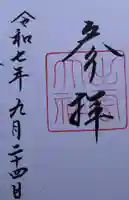 参拝
令和七年九月二十四日